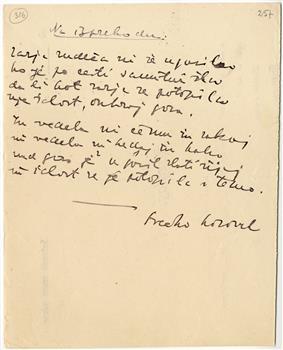 316
257
Na izprehodu.
Zarja rudeča ni še ugasila
ko je po cesti samotni šla
da bi kot zarja se potopila
nje žalost, onkraj gora.
In vedela ni čemu in zakaj
in vedela ni kedaj in kako
nad goro je ugasil zlati sijaj
in žalost se je potopila v temo.
Srečko Kosovel